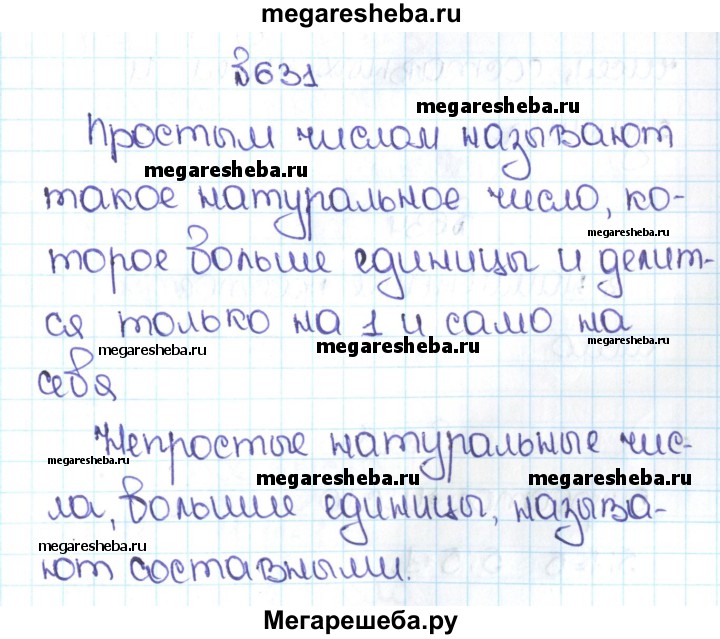 megaresheba.ru
№631
megaresheba.ru
Простым числом называют
megaresheba.ru
такое натуральное число, ко-
megaresheba.ru
торое больше единицы и делит-
ся только на 1 и само на
megaresheba.ru
megaresheba.ru
себя
Непростые натуральные чис-
megaresheba.ru
megaresheba.ru
megaresheba.ru
ла, большие единицы, называ-
megaresheba.ru
ют составными.
Мегарешеба.ру